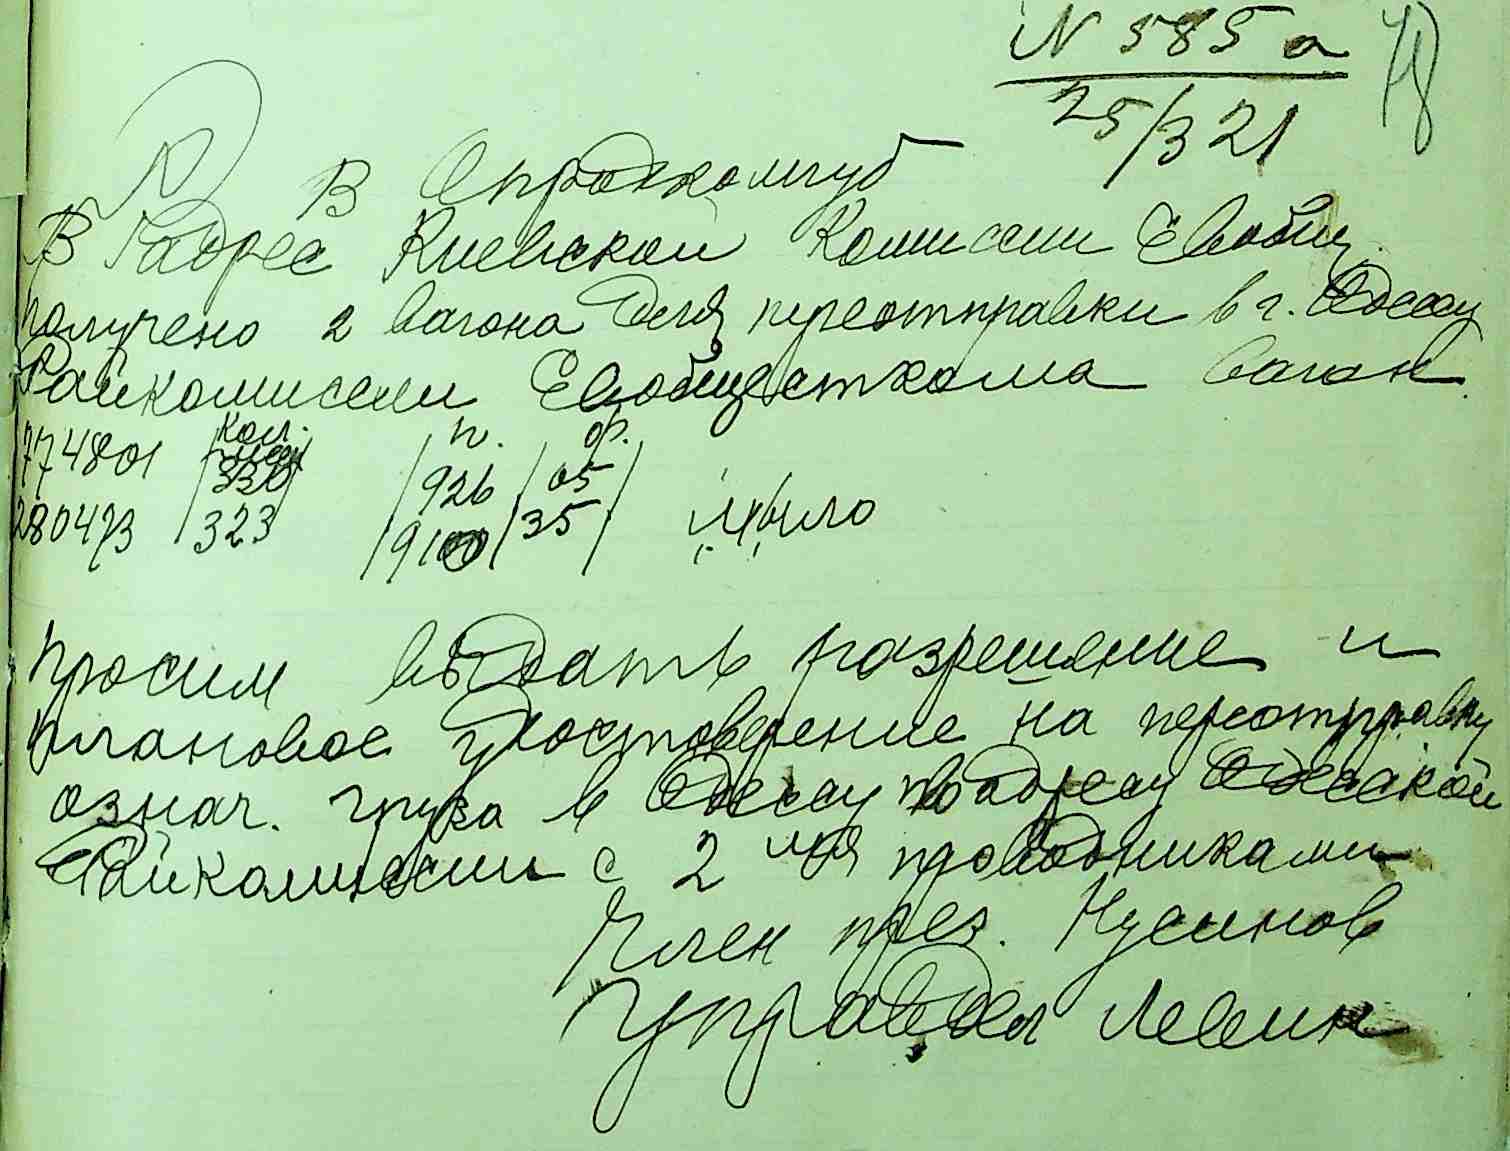 N 585 а
25/3 21
В Опродкомгуб
В адрес Киевской Комиссии Евобщ.
получено 2 вагона для переотправки в г. Одессу
Райкомиссии Евобщесткома вагон.
кол. п. ф.
774801 330 926 05
280473 323 910 35 мыло
просим выдать разрешение и
плановое удостоверение на переотправку
означ. груза в Одессу по адресу Одесской
Райкомиссии с 2 мя проводниками
Член през. Нусинов
Управдел Левин